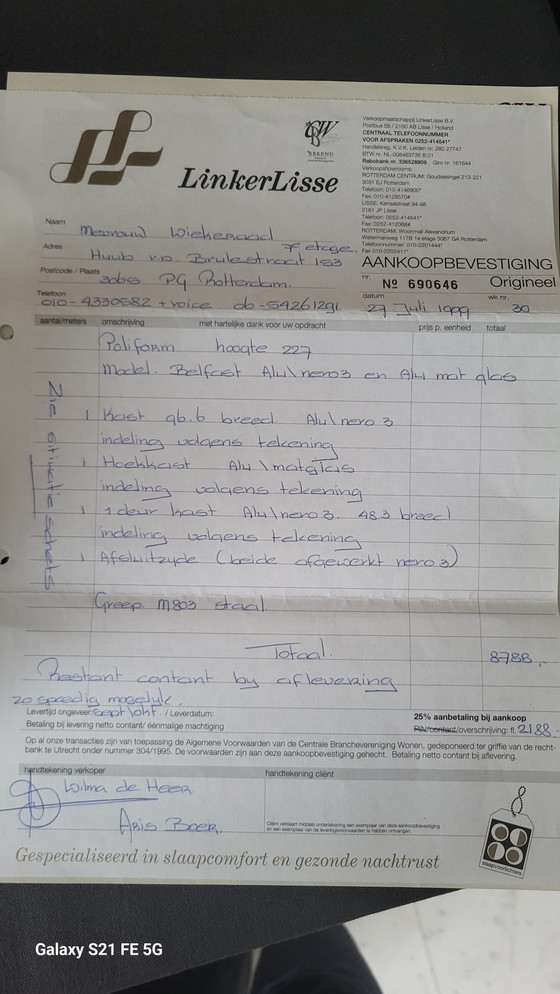 LinkerLisse
CBW
ERKEND
Verkoopmaatschappij LinkerLisse B.V.
Postbus 68 / 2160 AB Lisse / Holland
CENTRAAL TELEFOONNUMMER
VOOR AFSPRAKEN 0252-414541*
Handelsreg. K.V.K. Leiden nr. 280 27747
Rabobank nr. 336528809 Giro nr. 161644
Verkoopshowrooms:
ROTTERDAM CENTRUM: Goudsesingel 213-221
3031 EJ Rotterdam
LISSE: Kanaalstraat 94-98
2161 JP Lisse
Telefoon: 0252-414541*
ROTTERDAM: Woonmall Alexandrium
Watermanweg 117B 1e etage 3067 GA Rotterdam
Telefoonnummer: 010-2201444*
AANKOOPBEVESTIGING
Naam Mevrouw Wiekeraad
7e etage.
Adres Huub v.d. Brulestraat 153
Postcode / Plaats 3065 PG Rotterdam.
nr. Nº 690646 Origineel
Telefoon 010-4330582 + voice 06-54261291.
datum 27 Juli 1999 wk.nr. 30
aantal/meters omschrijving met hartelijke dank voor uw opdracht prijs p. eenheid totaal
Poliform hoogte 227
Model. Belfast Alu\nero3 en Alu mat glas
Zie situatie schets
1 Kast 96.6 breed. Alu\nero 3
indeling volgens tekening
1 Hoekkast Alu \matglas
indeling volgens tekening
1 1 deur kast Alu\nero 3. 48.3 breed
indeling volgens tekening
1 Afsluitzyde (beide afgewerkt nero 3)
Greep. M803 staal.
Totaal. 8788,-
Restant contant by aflevering
zo spoedig mogelyk.
Levertijd ongeveer: sept/okt. / Leverdatum:
25% aanbetaling bij aankoop
Betaling bij levering netto contant/ éénmalige machtiging
PIN/contant/overschrijving: fl. 2188.-
Op al onze transacties zijn van toepassing de Algemene Voorwaarden van de Centrale Branchevereniging Wonen, gedeponeerd ter griffie van de recht-
bank te Utrecht onder nummer 304/1995. De voorwaarden zijn aan deze aankoopbevestiging gehecht. Betaling netto contant bij aflevering.
handtekening verkoper handtekening cliënt
Wilma de Heer
Aris Boer.
Cliënt verklaart middels ondertekening een exemplaar van deze aankoopbevestiging
en een exemplaar van de leveringsvoorwaarden te hebben ontvangen.
slaapvoorlichters
Gespecialiseerd in slaapcomfort en gezonde nachtrust
Galaxy S21 FE 5G